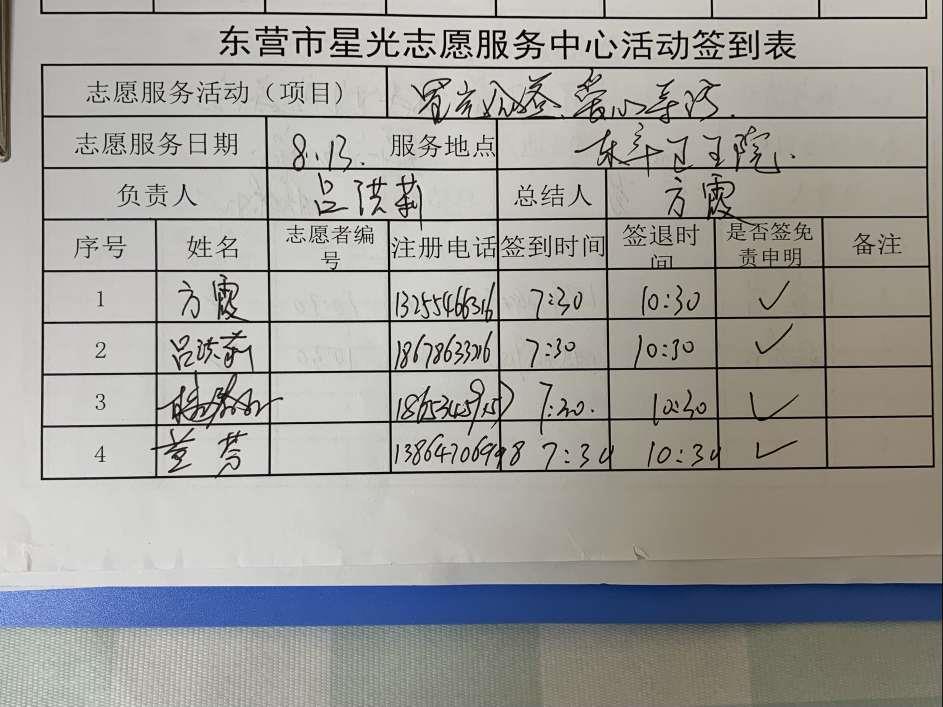 东营市星光志愿服务中心活动签到表
志愿服务活动（项目） 爱心导诊.
志愿服务日期 8.13. 服务地点 院.
负责人 吕洪莉 总结人 方霞
序号 姓名 志愿者编号 注册电话 签到时间 签退时间 是否签免责申明 备注
1 方霞 13255466316 7:30 10:30 ✓
2 吕洪莉 18678633216 7:30 10:30 ✓
3 7:30. 10:30 ✓
4 董芳 7:30 10:30 ✓